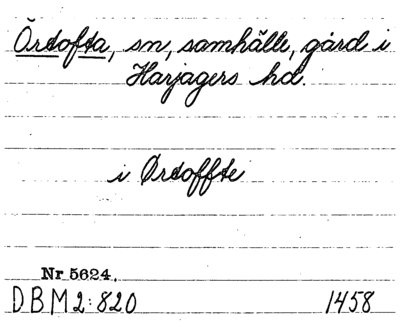 Örtofta, sn, samhälle, gård i
Harjagers hd.
i Ørtoffte
Nr 5624.
DBM 2:820 1458